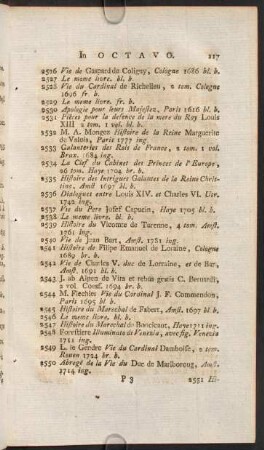 In OCTAVO. 117
2526 Vie de Gaspard de Coligny, Cologne 1686 bl. b.
2527 Le meme livre. bl. b.
2528 Vie du Cardinal de Richelieu, 2 tom. Cologne
1696 fr. b.
2529 Le meme livre. fr. b.
2530 Apologie pour leurs Majestez, Paris 1616 bl. b.
2531 Pièces pour la defence de la mere du Roy Louis
XIII 2 tom. 1 vol. bl. b.
2532 M. A. Mongon Histoire de la Reine Marguerite
de Valois, Paris 1777 ing.
2533 Galanteries des Rois de France, 2 tom. 1 vol
Brux. 1684 ing.
2534 La Clef du Cabinet des Princes de l'Europe,
26 tom. Haye 1704 br. b.
2535 Histoire des Intrigues Galantes de la Reine Christine,
Amst 1697 bl. b.
2536 Dialogues entre Louis XIV. et Charles VI. Utr.
1742 ing.
2537 Vie du Pere Josef Capucin, Haye 1705 bl. b.
2538 Le meme livre. bl. b.
2539 Histoire du Vicomte de Turenne, 4 tom. Amst.
1761 ing.
2540 Vie de Jean Bart, Amst. 1781 ing.
2541 Histoire de Filipe Emanuel de Loraine, Cologne
1689 br. b.
2542 Vie de Charles V. duc de Lorraine, et de Bar,
Amst. 1691 bl. b.
2543 J. ab Alpen de Vita et rebus gestis C. Bernardi,
2 vol. Coesf. 1694 br. b.
2544 M. Flechier Vie du Cardinal J. F. Commendon,
Paris 1695 bl. b.
2545 Histoire du Marechal de Fabert, Amst. 1697 bl. b.
2546 Le meme livre. bl. b.
2547 Histoire du Marechal de Boucicaut, Haye 1711 ing.
2548 Forestiere Illuminato di Venezia, avec fig. Venezia
1711 ing.
2549 L. le Gendre Vie du Cardinal Damboise, 2 tom.
Rouen 1724 br. b.
2550 Abregé de la Vie du Duc de Marlboroug, Amst.
1714 ing.
P 3 2551 Hi-